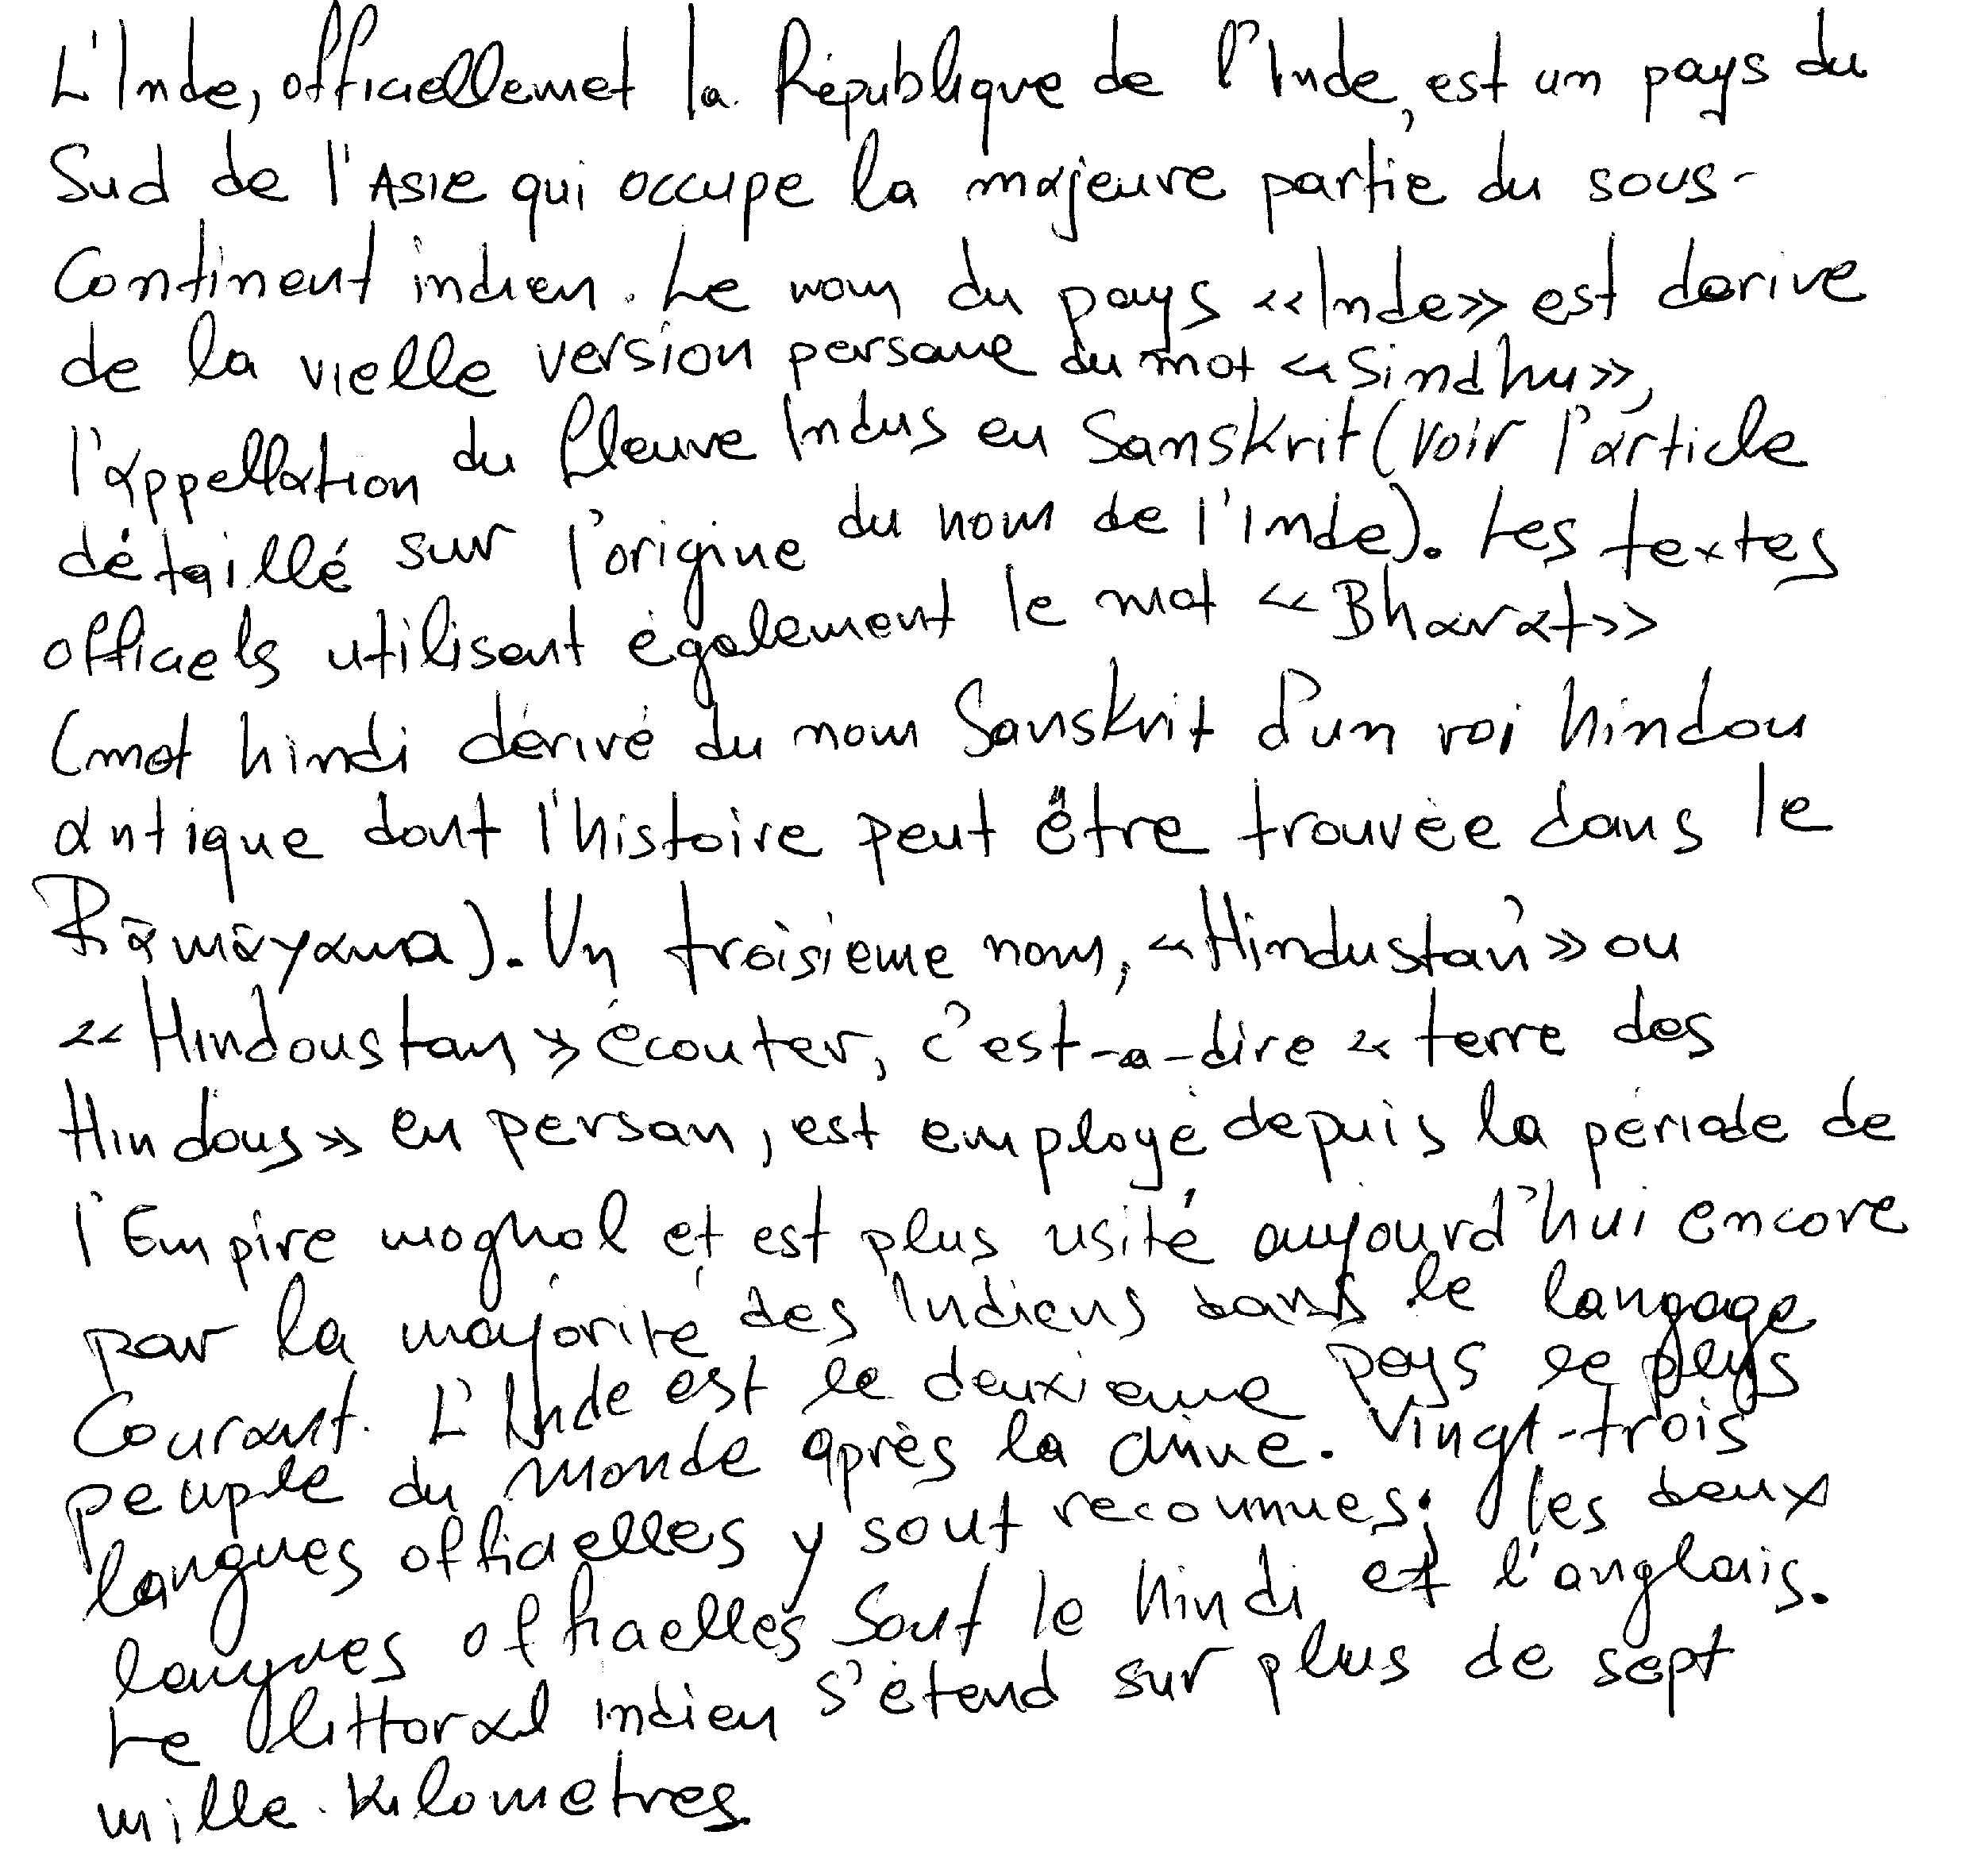 L'Inde, officiellemet la République de l'Inde, est un pays du
Sud de l'Asie qui occupe la majeure partie du sous-
Continent indien. Le nom du pays «Inde» est dérive
de la vielle version persane du mot «Sindhu»,
l'appellation du fleuve Indus en Sanskrit (voir l'article
détaillé sur l'origine du nom de l'Inde). Les textes
officiels utilisent également le mot «Bharat»
(mot hindi dérivé du nom Sanskrit d'un roi hindou
antique dont l'histoire peut être trouvée dans le
Rāmāyana). Un troisieme nom, «Hindustan» ou
«Hindoustan» écouter, c'est-a-dire «terre des
Hindous» en persan, est employé depuis la période de
l'Empire moghol et est plus usité aujourd'hui encore
par la majorité des Indiens dans le langage
Courant. L'Inde est le deuxieme pays le plus
peuple du Monde après la chine. Vingt-trois
langues officielles y sont reconnues; les deux
langues officielles sont le hindi et l'anglais.
Le littoral indien s'étend sur plus de sept
mille kilometres.